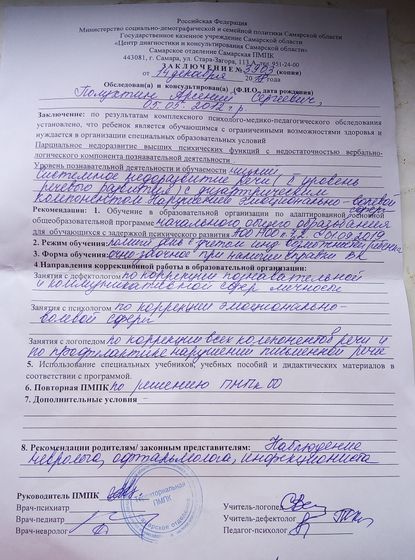 Российская Федерация
Министерство социально-демографической и семейной политики Самарской области
Государственное казенное учреждение Самарской области
«Центр диагностики и консультирования Самарской области»
Самарское отделение ПМПК
443081, г. Самара, ул. Стара-Загора, 111, 951-24-00
ЗАКЛЮЧЕНИЕ (копия)
от 14 декабря 20
Обследован(а) и консультирован(а) (Ф.И.О., дата рождения)
Полухтин Арсений Сергеевич,
05.05.2012 г.р.
Заключение: по результатам комплексного психолого-медико-педагогического обследования
установлено, что ребенок является обучающимся с ограниченными возможностями здоровья и
нуждается в организации специальных образовательных условий
Парциальное недоразвитие высших психических функций с недостаточностью вербально-
логического компонента познавательной деятельности
Уровень познавательной деятельности и обучаемости низкий
Системное недоразвитие речи (II уровень
речевого развития) с дизартрическим
компонентом Нарушение эмоционально-волевой
сферы
Рекомендации: 1. Обучение в образовательной организации по адаптированной основной
общеобразовательной программе начального общего образования
для обучающихся с задержкой психического развития 7.2 с 01.09.2019
2. Режим обучения: полный день с учетом инд возможностей ребенка
3. Форма обучения: очно-заочное при наличии справки ВК
4. Направления коррекционной работы в образовательной организации:
Занятия с дефектологом по коррекции познавательной
и коммуникативной сфер личности
Занятия с психологом по коррекции эмоционально-
волевой сферы
Занятия с логопедом по коррекции всех компонентов речи и
по профилактике нарушений письменной речи
5. Использование специальных учебников, учебных пособий и дидактических материалов в
соответствии с программой.
6. Повторная ПМПК по решению ПМПк ОО
7. Дополнительные условия –
8. Рекомендации родителям/ законным представителям: Наблюдение
невролога, офтальмолога, инфекциониста
Руководитель ПМПК
Врач-психиатр
Врач-педиатр
Врач-невролог
Учитель-логопед
Учитель-дефектолог
Педагог-психолог
Территориальная
ПМПК